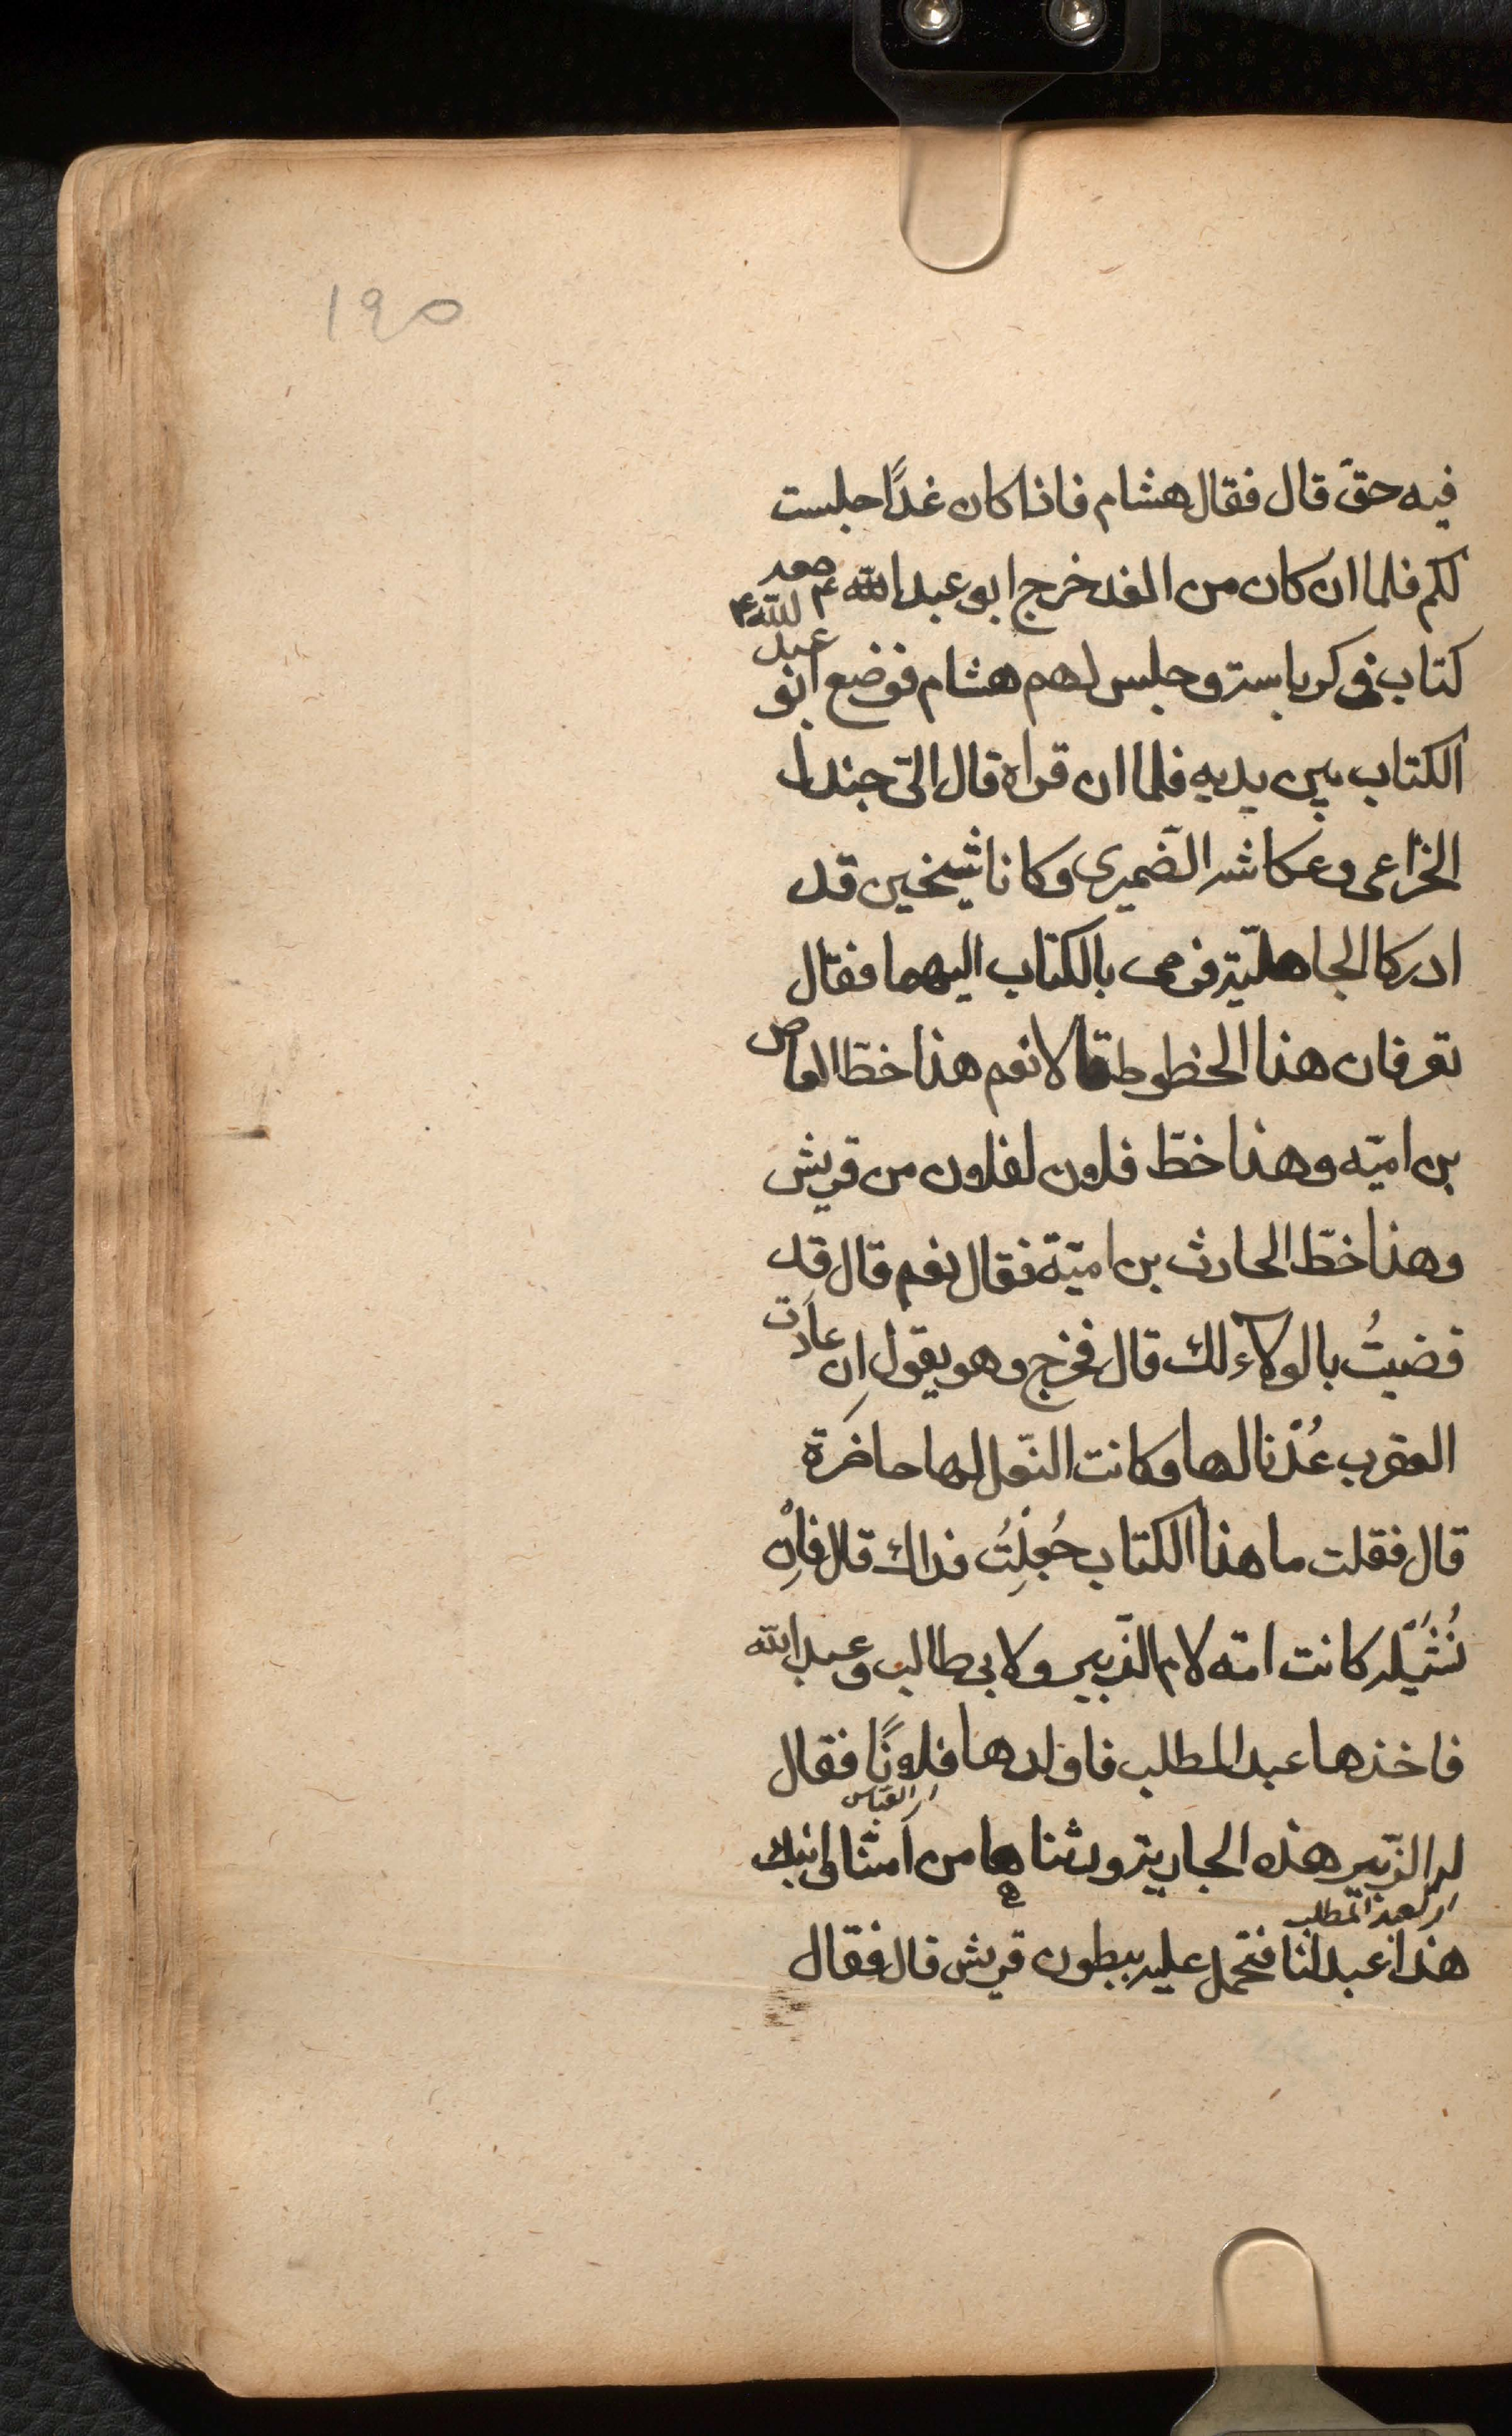 ١٩٥
فيه حقّ قال فقال هشام فاذا كان غدًا جلست
لكم فلما ان كان من الغد خرج ابو عبد الله ع ومعه
كتاب في كرباسة وجلس لهم هشام فوضع ابو عبد الله ع
الكتاب بين يديه فلما ان قراه قال الىّ جندل
الخزاعى وعكاشه الضّميرى وكانا شيخين قد
ادركا الجاهليّة فرمى بالكتاب اليهما فقال
تعرفان هذا الخطوط قالا نعم هذا خطّ العاص
بن اميّه وهذا خطّ فلان لفلان من قريش
وهذا خطّ الحارث بن اميّة فقال نعم قال قد
قضيتُ بالولاء لك قال فخرج وهو يقول اِن عادت
العقرب عُدْنا لها وكانت النّعل لها حاضرة
قال فقلت ما هذا الكتاب جُعِلْتُ فداك قال فاِنْ
نُثَيْلَه كانت امّه لام الزّبير ولابى طالب وعبد الله
فاخذها عبد المطلب فاولدها فلانًا فقال
ار العباس
له الزّبير هذه الجارية ورثناها من اُمّنا وابنك
ار لعبد المطلب
هذا عبد لنا فتحمل عليه ببطون قريش قال فقال